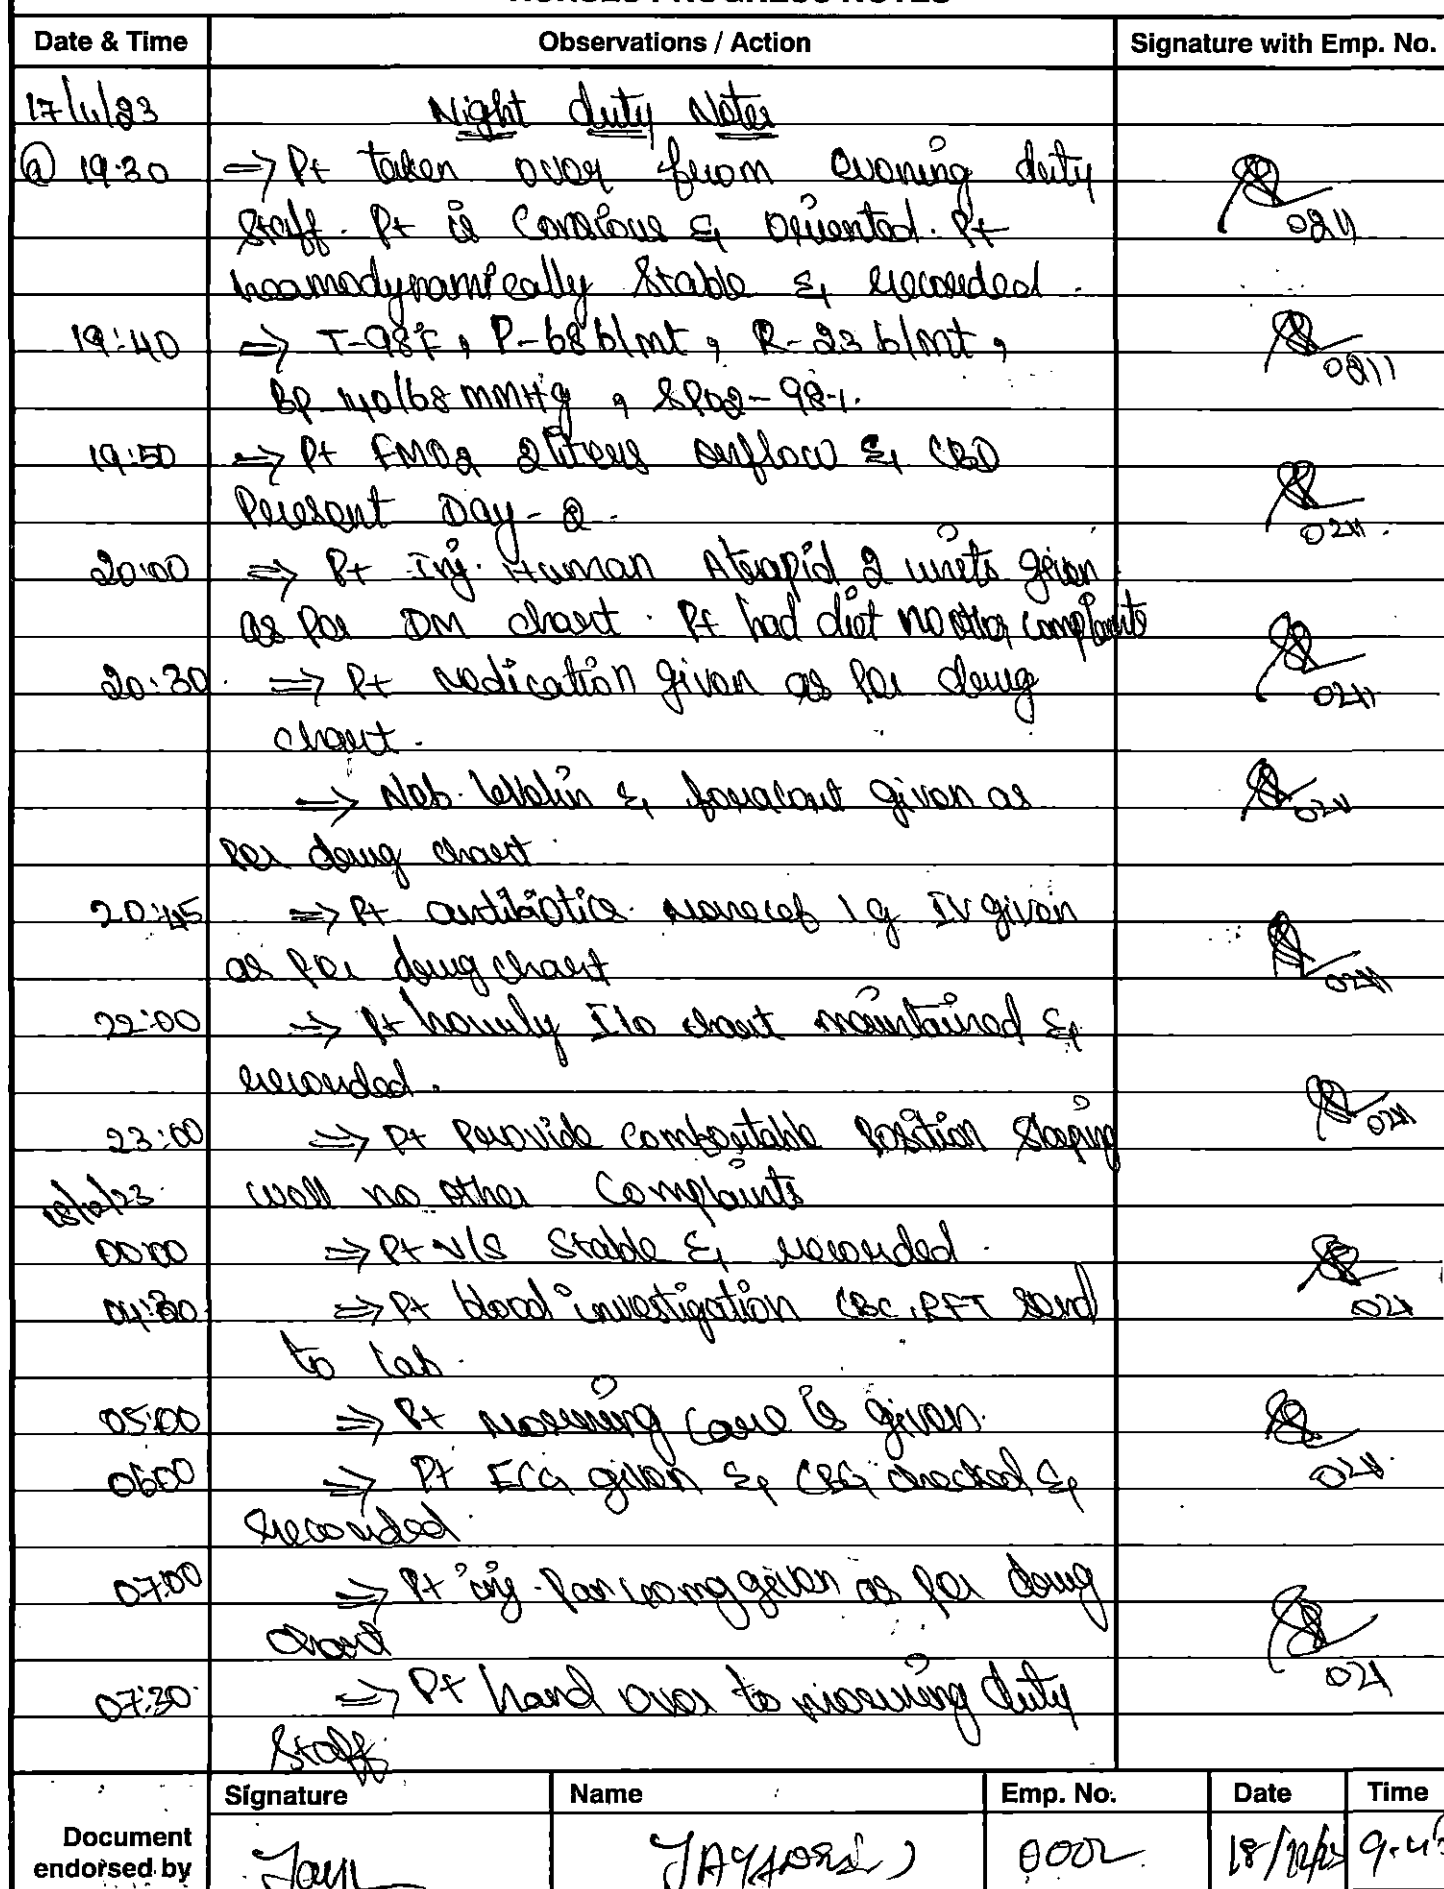 NURSES PROGRESS NOTES
Date & Time Observations / Action Signature with Emp. No.
17/11/23 Night duty Notes
@ 19:30 => Pt taken over from evening duty
staff. Pt is Consious & oriented. Pt 0211
heamodynamically Stable & recorded.
19:40 => T-98°F, P-68 b/mt, R-23 b/mt, 0211
BP-140/68 mmHg, SPO2-98%.
19:50 => Pt FMO2 2 liters onflow & CBD
Present Day-2. 0211.
20:00 => Pt Inj. Human Aterapid 2 units given
as Per DM chart. Pt had diet no other complaints
20:30 => Pt medication given as per drug 0211
chart.
=> Neb. levolin & foracort given as 0211
per drug chart.
20:45 => Pt antibiotics. Monocef 1g IV given
as per drug chart 0211
22:00 => Pt hourly I/O chart maintained &
recorded.
23:00 => Pt Provide comfortable Position Sleeping 0211
18/12/23 well no other Complaints
00:00 => Pt V/S Stable & recorded.
04:30 => Pt blood investigation CBC, RFT Send 021
to Lab.
05:00 => Pt morning care is given.
06:00 => Pt ECG given & CBG checked & 021
recorded.
07:00 => Pt inj. Pan given as per drug
chart
07:30 => Pt hand over to morning duty 021
Staff.
Signature Name Emp. No. Date Time
Document
endorsed by 0002 18/12/23